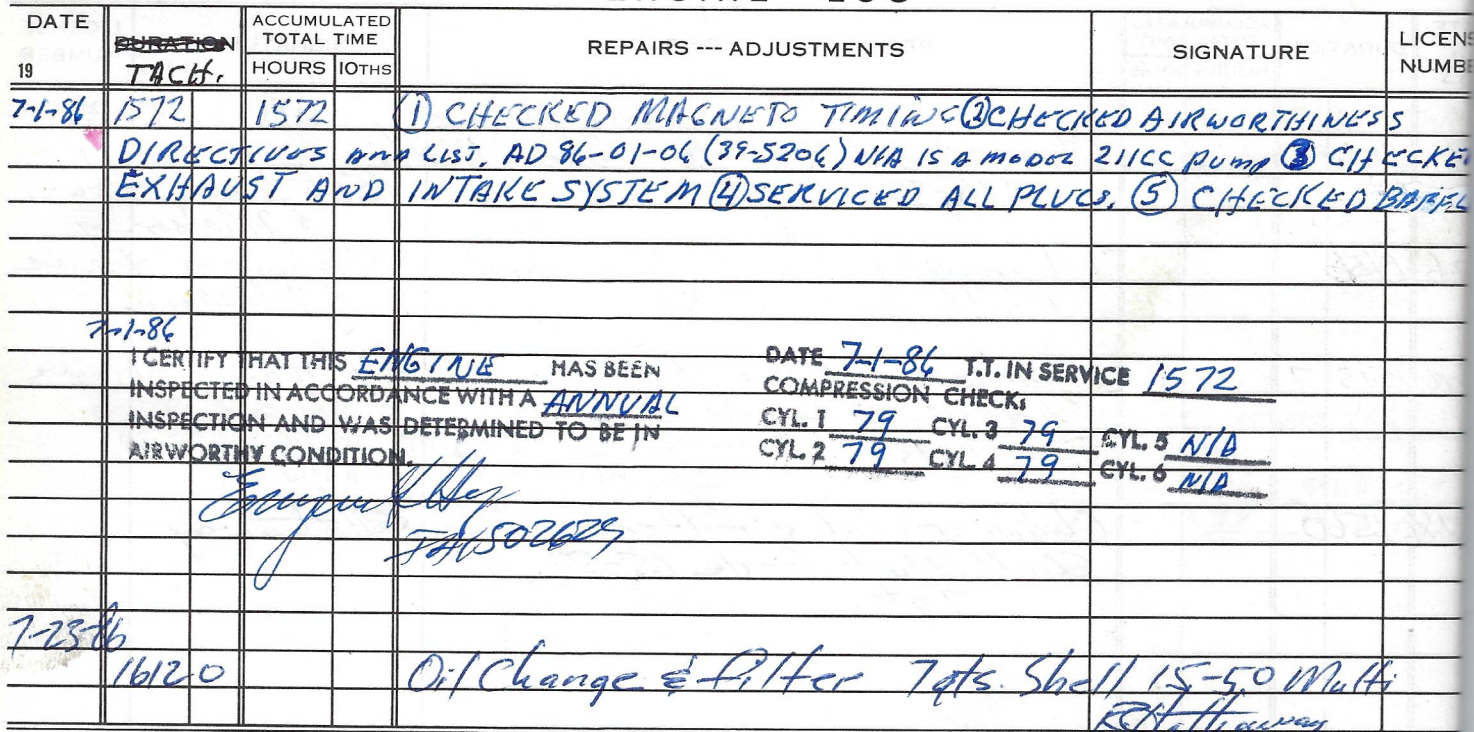 DATE DURATION ACCUMULATED TOTAL TIME REPAIRS --- ADJUSTMENTS SIGNATURE LICENS NUMBE
19 TACH. HOURS 10THS
7-1-86 1572 1572 ① CHECKED MAGNETO TIMING ② CHECKED AIRWORTHINESS
DIRECTIVES AND LIST. AD 86-01-06 (39-5206) N/A IS A MODEL 211CC PUMP ③ CHECKE
EXHAUST AND INTAKE SYSTEM ④ SERVICED ALL PLUGS. ⑤ CHECKED
7-1-86
I CERTIFY THAT THIS ENGINE HAS BEEN
INSPECTED IN ACCORDANCE WITH A ANNUAL
INSPECTION AND WAS DETERMINED TO BE IN
AIRWORTHY CONDITION.
DATE 7-1-86 T.T. IN SERVICE 1572
COMPRESSION CHECK:
CYL. 1 79 CYL. 3 79 CYL. 5 N/A
CYL. 2 79 CYL. 4 79 CYL. 6 N/A
7-23-86
1612 0 Oil Change & filter 7qts. Shell 15-50 Multi